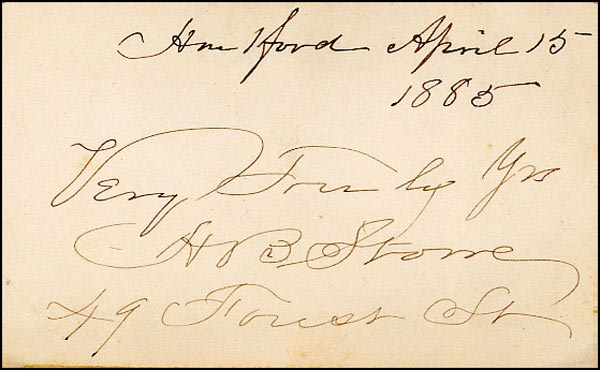 Hartford April 15
1885
Very Truly Yrs
H B Stowe
49 Forest St